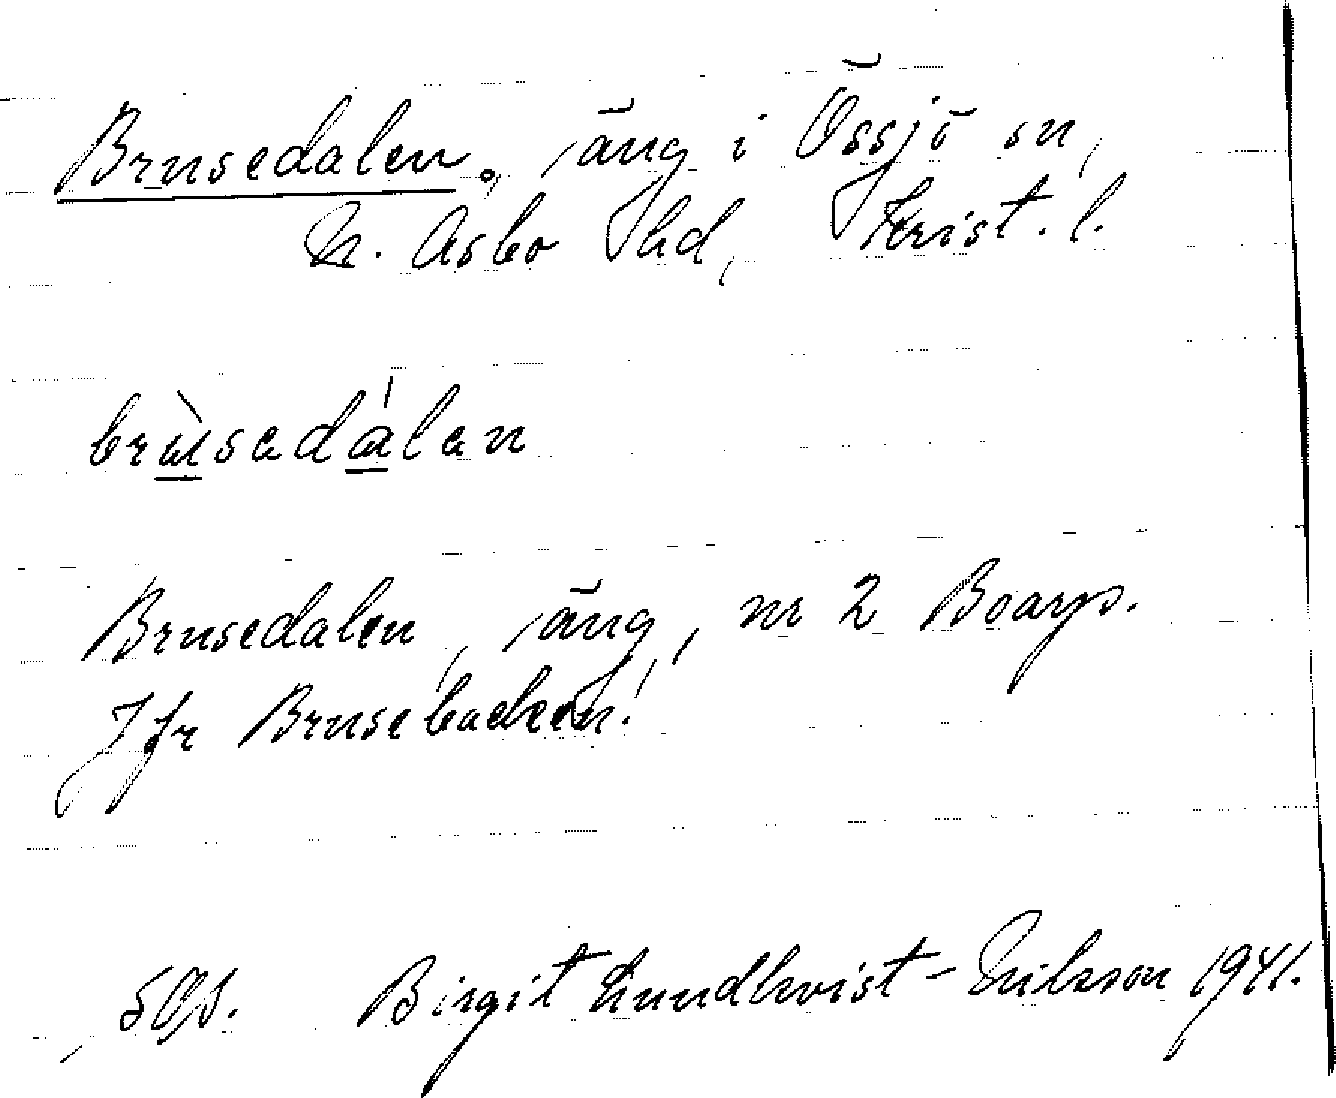 Brusedalen, äng i Össjö sn,
N. Åsbo hd, Krist. l.
brùsedálen
Brusedalen, äng, nr 2 Boarp.
Jfr Brusebacken!
Birgit Lundkvist-Nilsson 1941.